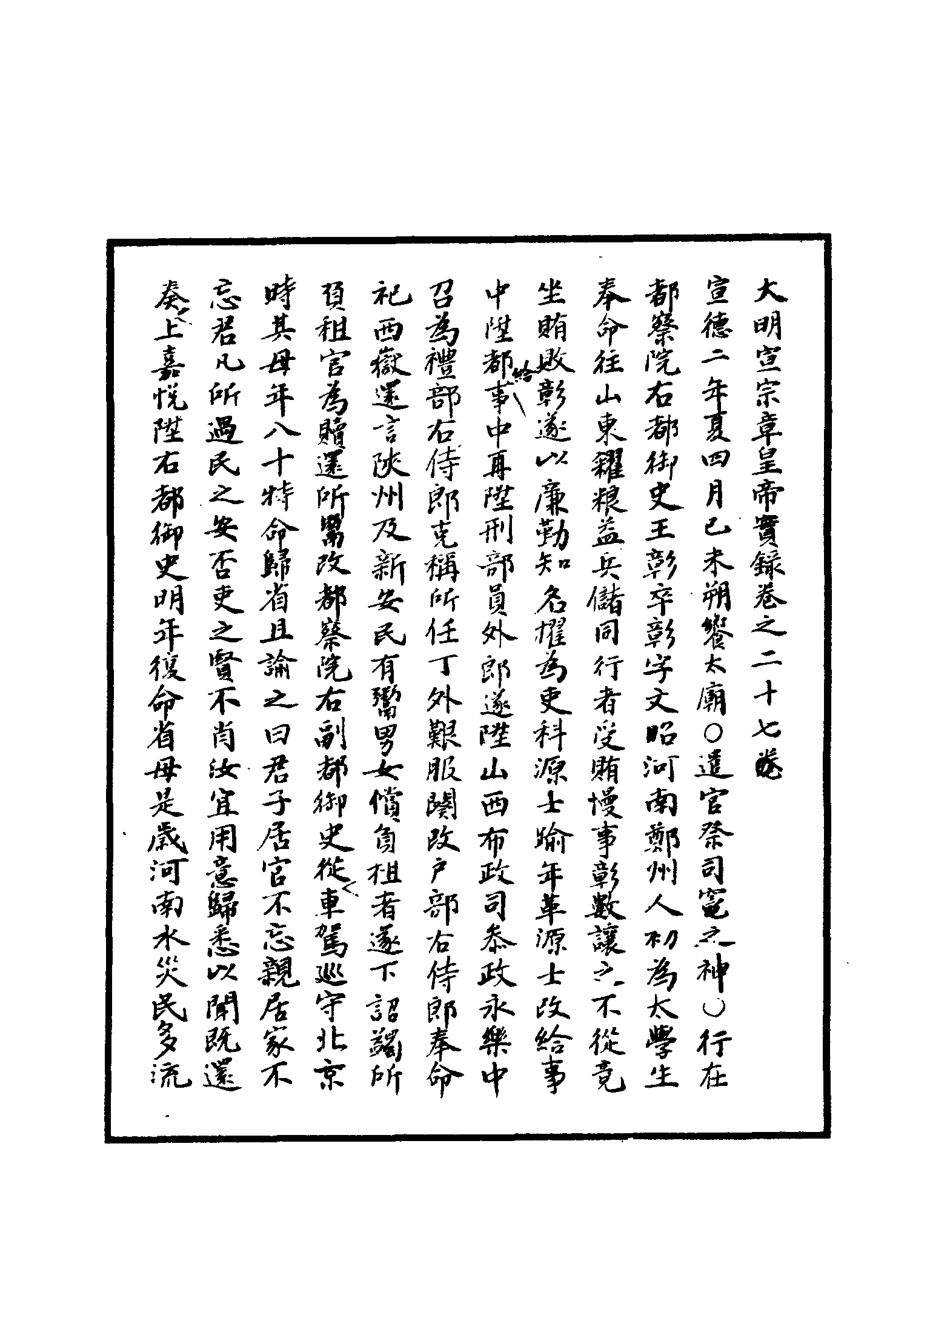 大明宣宗章皇帝實錄卷之二十七卷
宣德二年夏四月己未朔饗太廟○遣官祭司竈之神○行在
都察院右都御史王彰卒彰字文昭河南鄭州人初為太學生
奉命往山東糴粮益兵儲同行者受賄慢事彰數讓之不從竟
坐賄敗彰遂以廉勤知名擢為吏科源士踰年革源士改給事
中陞都給事中再陞刑部員外郎遂陞山西布政司叅政永樂中
召為禮部右侍郎克稱所任丁外艱服闋改戶部右侍郎奉命
祀西嶽還言陝州及新安民有鬻男女償負租者遂下詔蠲所
負租官為贖還所鬻改都察院右副都御史從車駕巡守北京
時其母年八十特命歸省且諭之曰君子居官不忘親居家不
忘君凡所過民之安否吏之賢不肖汝宜用意歸悉以聞既還
奏上嘉悅陞右都御史明年復命省母是歲河南水災民多流